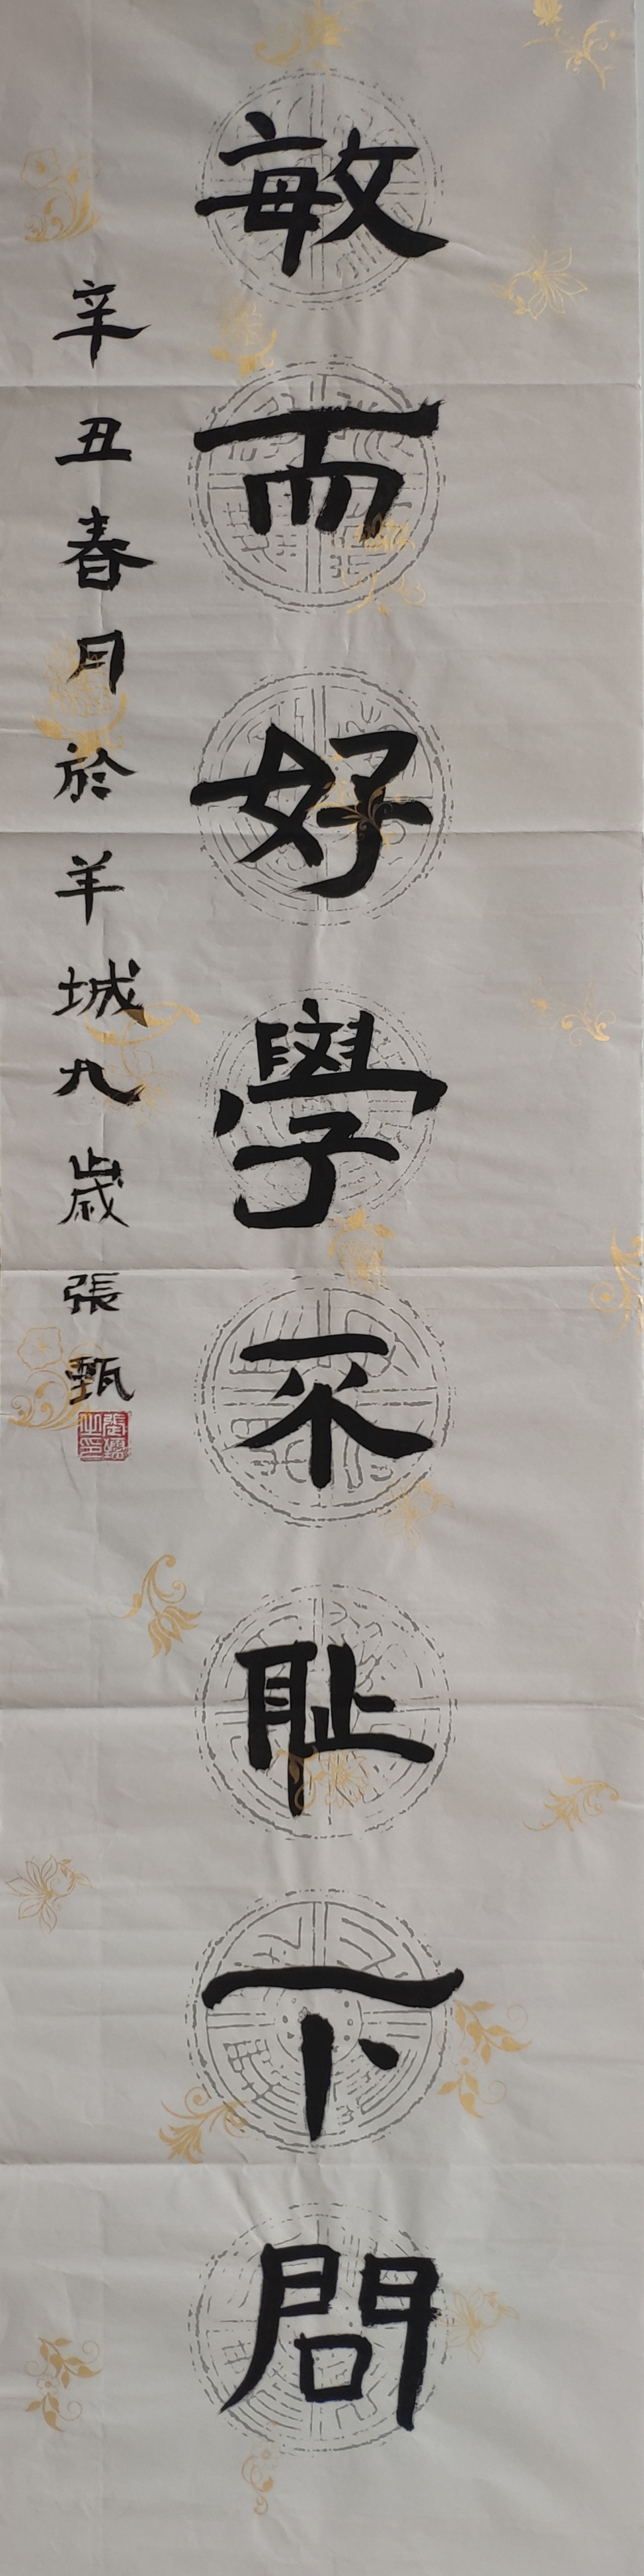 敏而好學不恥下問
辛丑春月於羊城九歲張甄